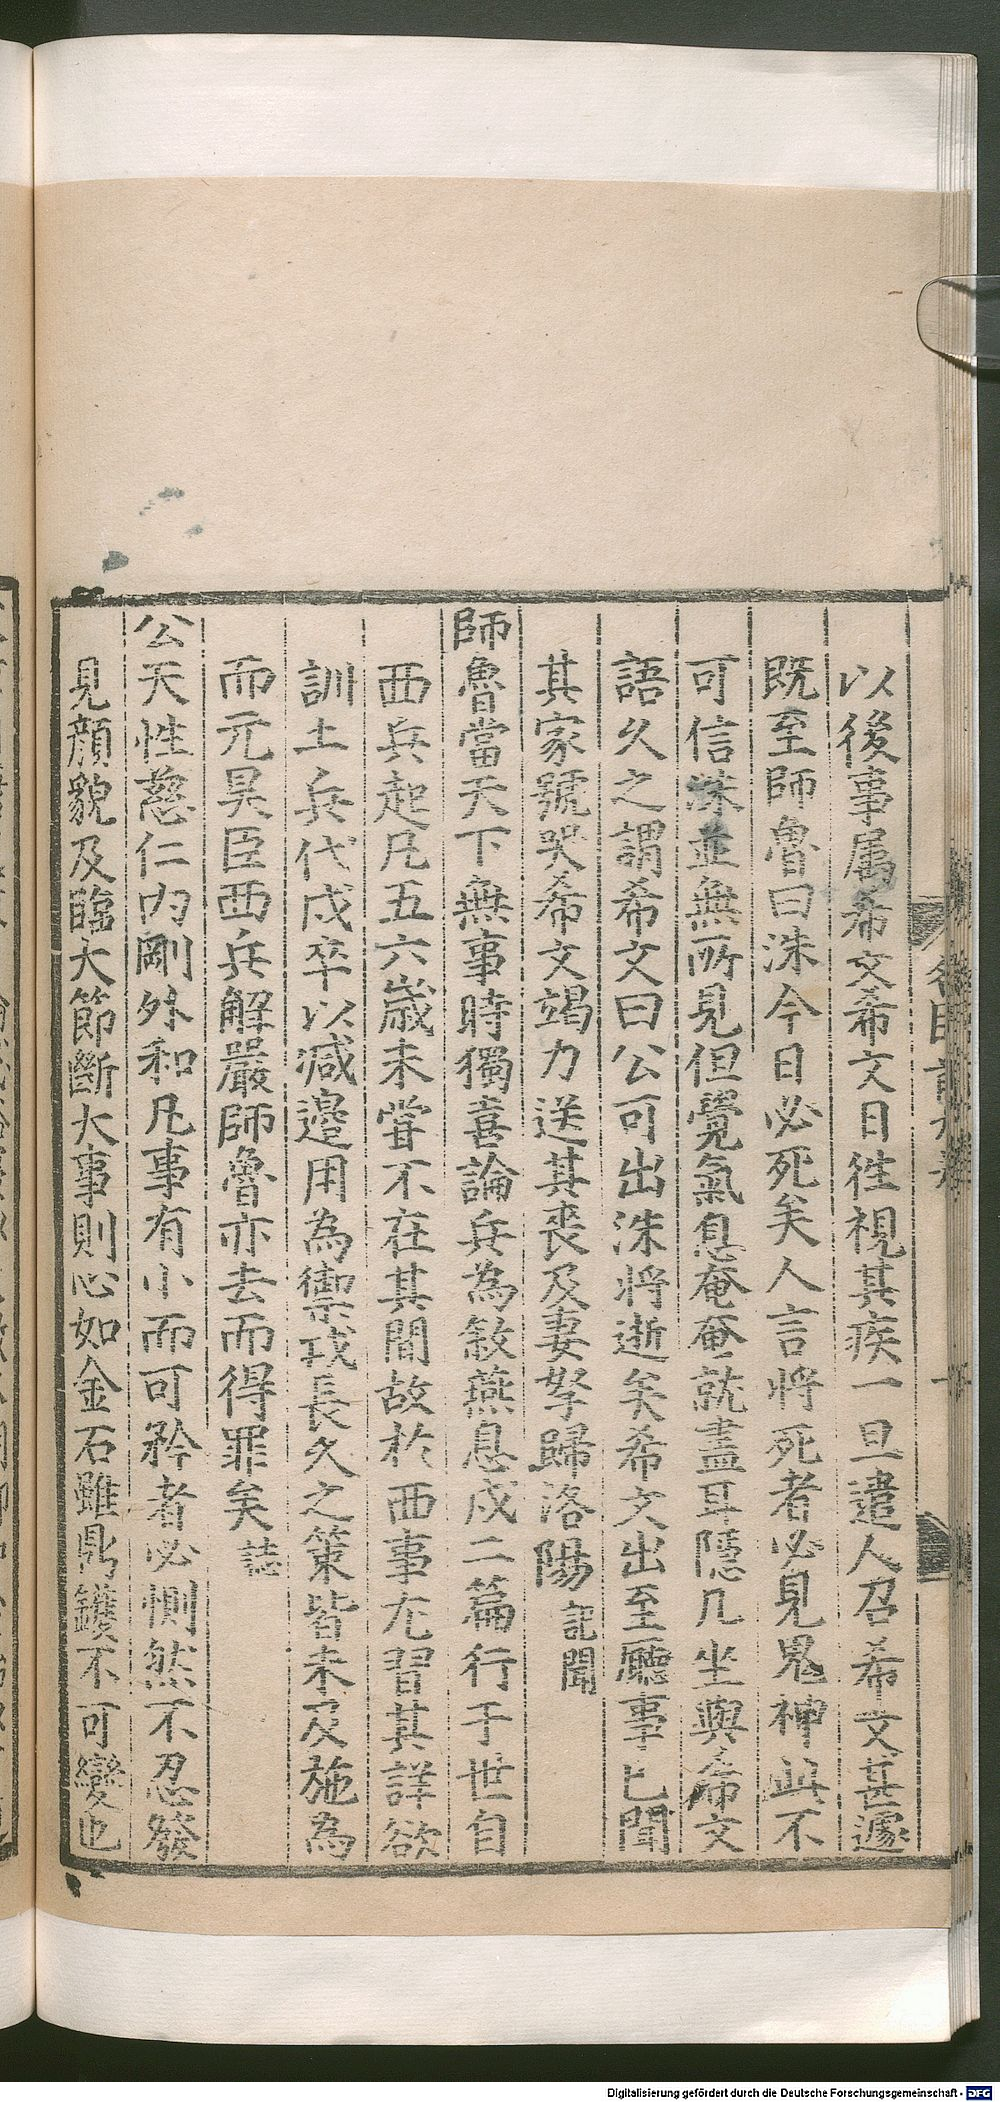 以後事属希文希文日徃視其疾一旦遣人召希文甚遽
既至師魯曰洙今日必死矣人言將死者必見鬼神此不
可信洙並無所見但覺氣息奄奄就盡耳隱几坐與希文
語久之謂希文曰公可出洙將逝矣希文出至廳事已聞
其家號哭希文竭力送其喪及妻孥歸洛陽 記聞
師魯當天下無事時獨喜論兵為敘燕息戍二篇行于世自
西兵起凡五六歲未甞不在其間故於西事尤習其詳欲
訓土兵代戍卒以減邊用為禦戎長久之策皆未及施為
而元昊臣西兵解嚴師魯亦去而得罪矣 誌
公天性慈仁内剛外和凡事有小而可矜者必惻然不忍發
見顔貌及臨大節斷大事則心如金石雖鼎鑊不可變也
Digitalisierung gefördert durch die Deutsche Forschungsgemeinschaft - DFG